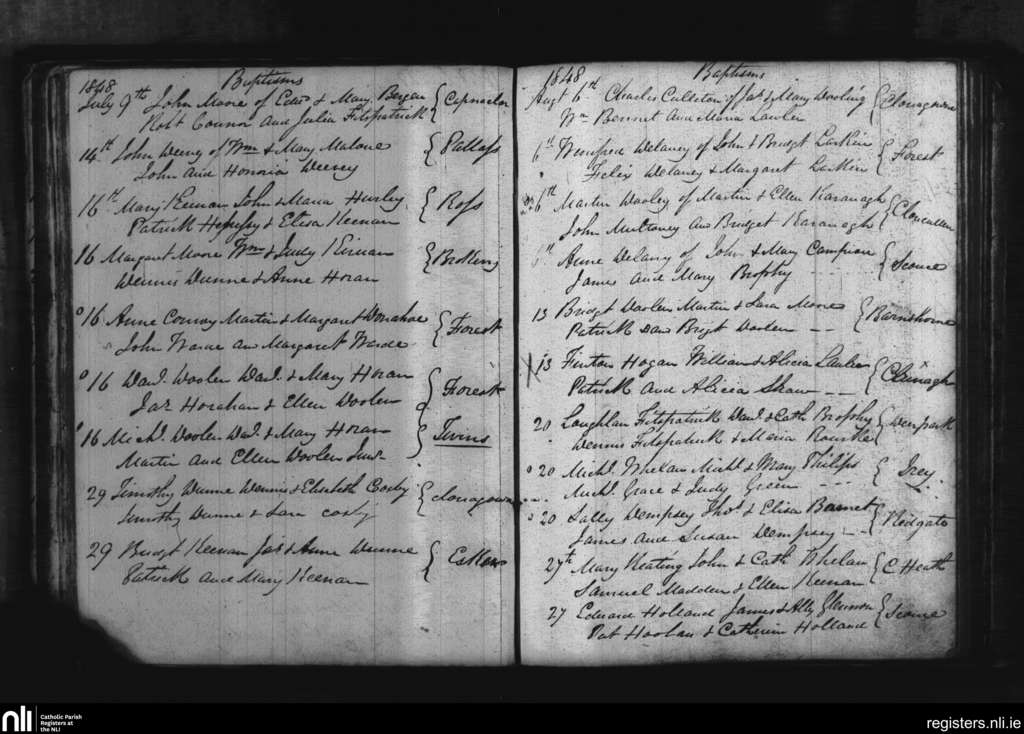 1848 Baptisms
July 9th John Moore of Edwd & Mary Bergan { Capnaclon
Robt Connor and Julia Fitzpatrick
14th John Weeney of Wm & Mary Malone { Pallass
John and Honoria Weeney
16th Mary Keenan John & Maria Hurley { Ross
Patrick & Elisa Keenan
16 Margaret Moore Wm & Judy Kirnan {
Dennis Dunne & Anne Horan
16 Anne Conroy Martin & Margaret Donahoe { Forest
John and Margaret
16 Danl. Doolen Danl. & Mary Horan { Forest
Jas Horahan & Ellen Doolen
16 Michl. Doolen Danl & Mary Horan { Twins
Martin and Ellen Doolen Junr.
29 Timothy Dunne Dennis & Elisabeth Cosby { Clonagown
Timothy Dunne & Sara Cosby
29 Bridgt Keenan Jas & Anne Dunne { Esker
Patrick and Mary Keenan
1848 Baptisms
Augt 6th Charles Culleton of Jas & Mary Dooling { Clonagown
Wm Bennet and Maria Lawler
6th Winifred Delaney of John & Bridgt Larkin { Forest
Felix Delaney & Margaret Larkin
6th Martin Dooley of Martin & Ellen Kavanagh {
John Mulroney and Bridget Kavanagh
6th Anne Delany of John & Mary Campion { Scouce
James and Mary Brophy
13 Bridgt Doolen Martin & Sara Moore { Barnshrone
Patrick and Bridgt Doolen
13 Finton Hogan William & Alicia Lawler { Clunagh
Patrick and Alicia Shaw
20 Loughlan Fitzpatrick Danl & Cath Brophy { Deerpark
Dennis Fitzpatrick & Maria Rourke
20 Michl. Whelan Michl & Mary Philips { Irey
Michl. Grace & Judy Green
20 Sally Dempsey Thos & Elisa Bennet { Redgate
James and Susan Dempsey
27th Mary Keating John & Cath Whelan { C Heath
Samuel Madden & Ellen Keenan
27 Edward Holland James & Ally Gleeson { Scouce
Pat Hoolan & Catherin Holland
nli Catholic Parish
Registers at
the NLI
registers.nli.ie